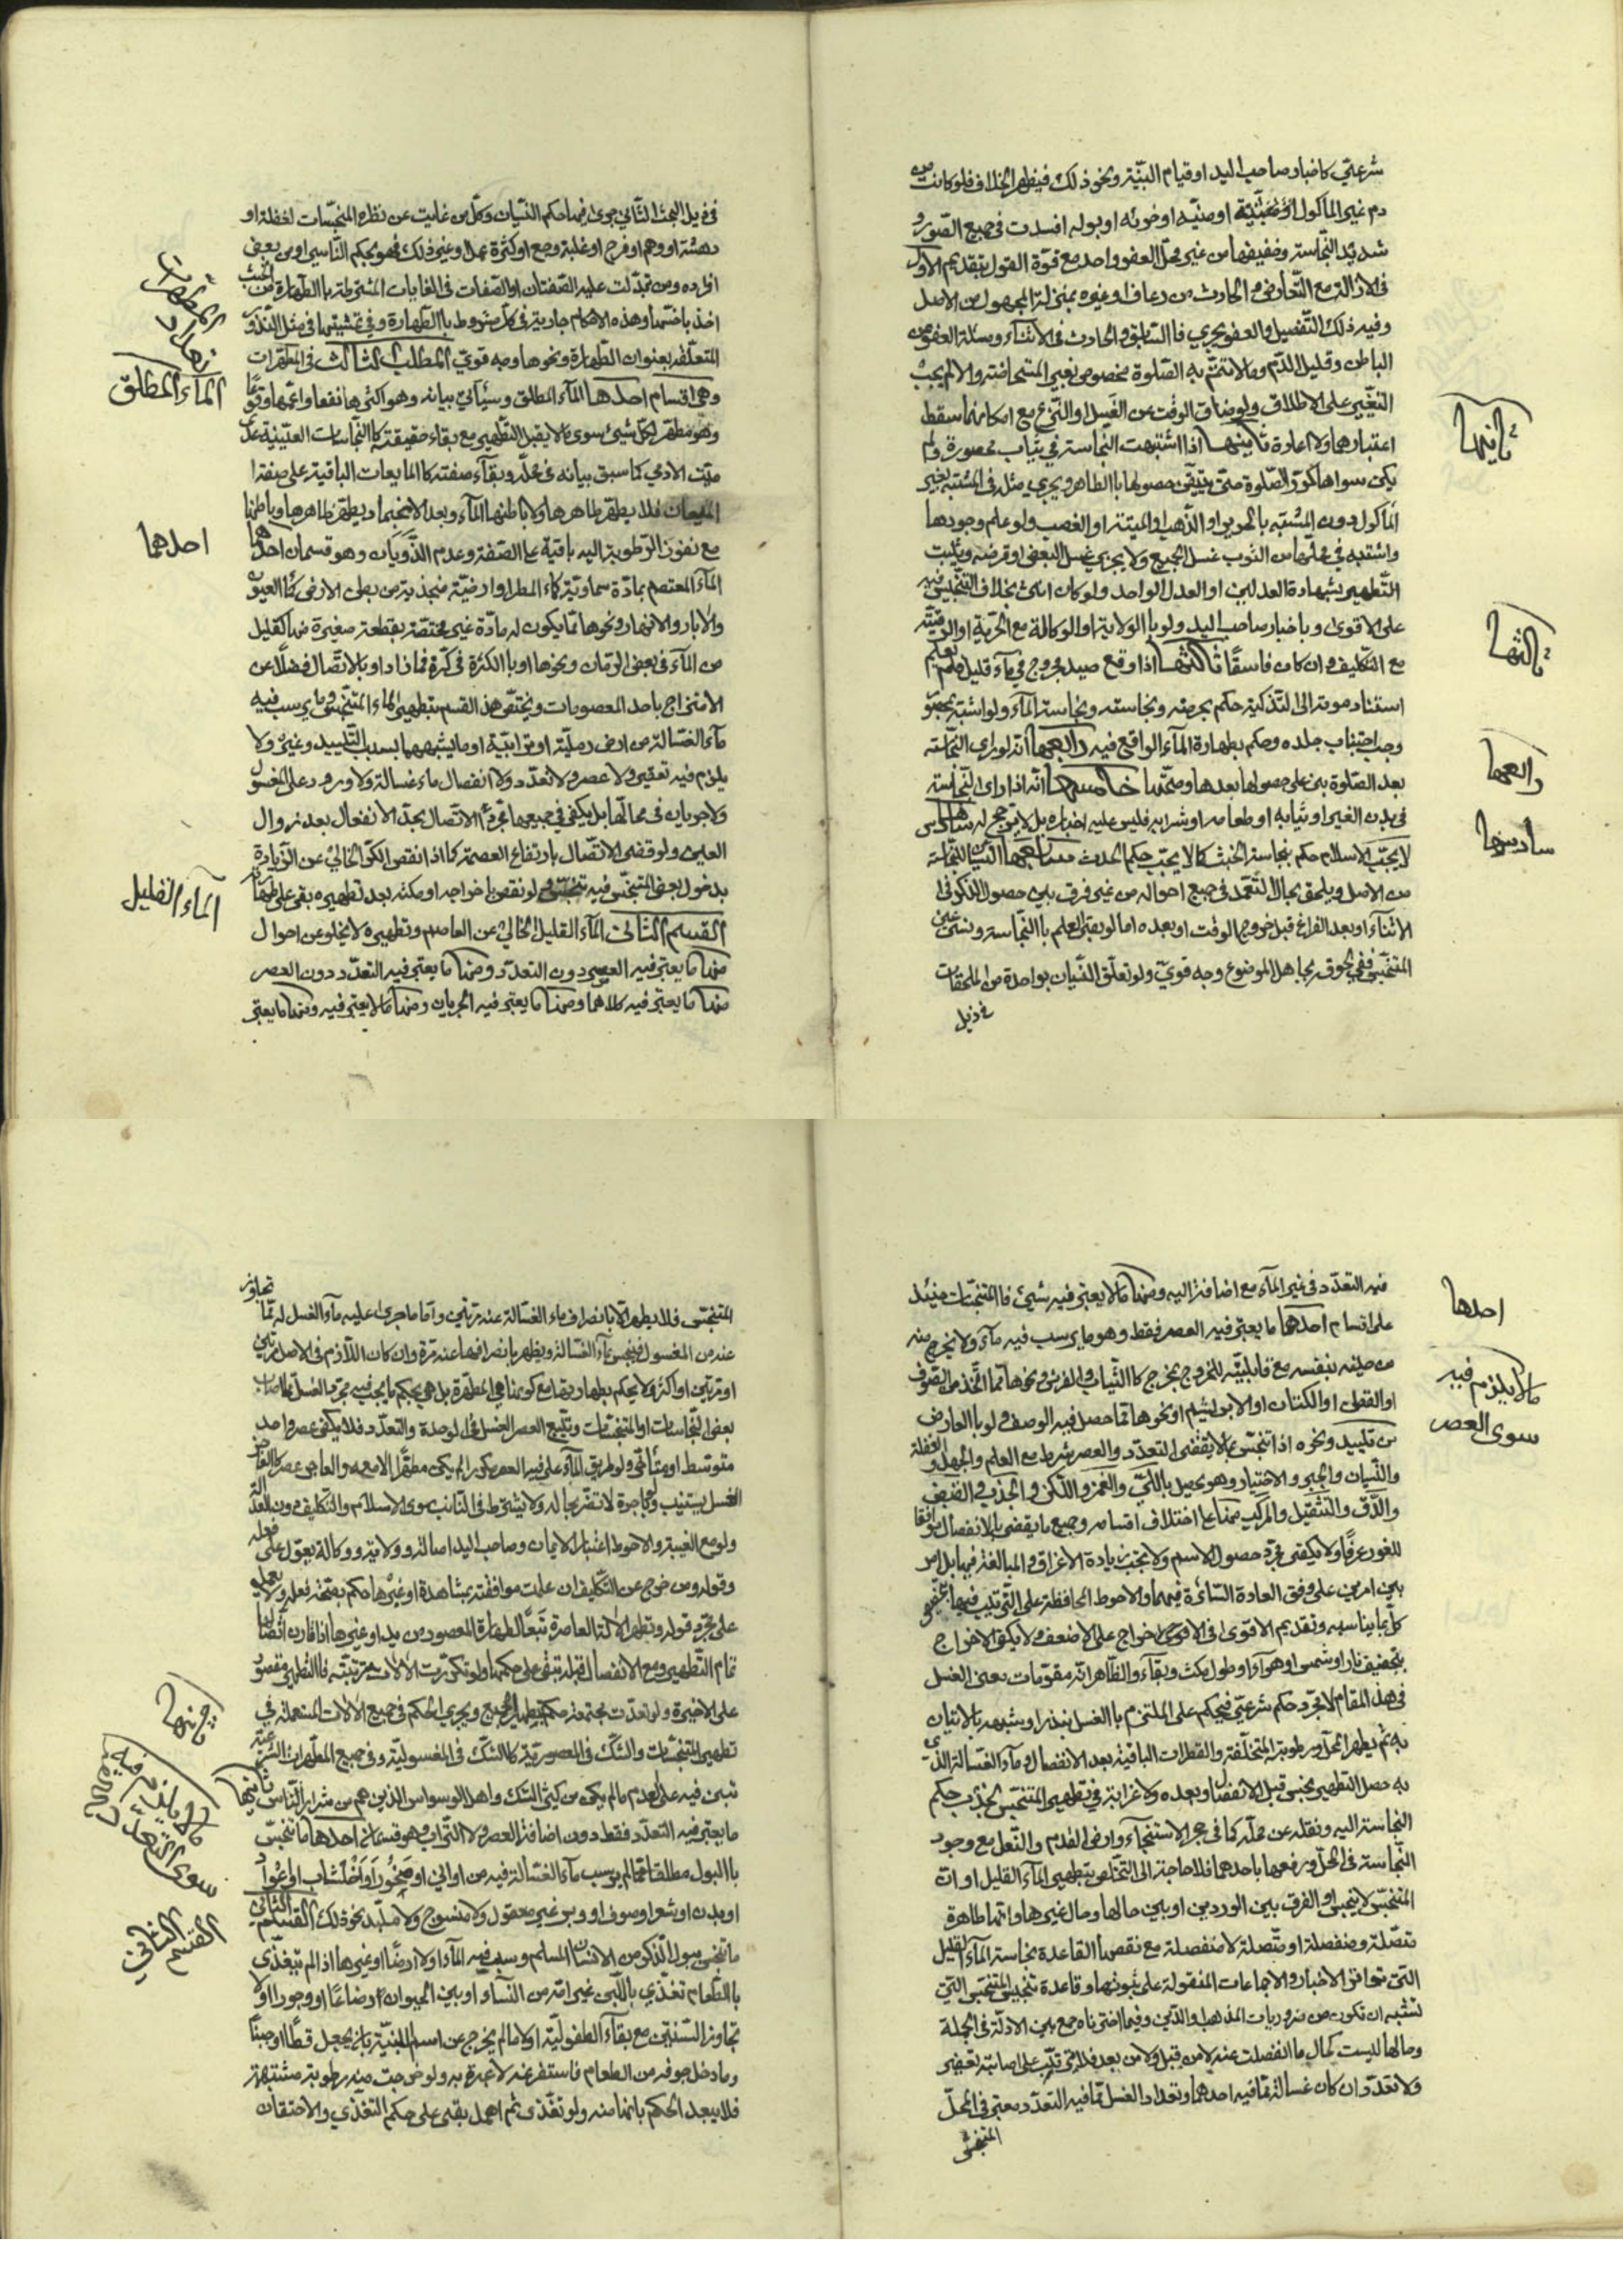 شرعيّ كاخبار صاحب اليد او قيام البيّنة ونحو ذلك فيظهر الخلاف فلو كانت من
دم غير المأكول او ميتة او منيّه او خرئه او بوله افسدت في جميع الصّور و
شديد النّجاسة وخفيفها من غير محلّ العفو واحد مع قوّة القول بتقديم الاوّل
في الازالة مع التّعارض والحادث من رعاف او غيره بمنزلة المجهول من الاصل
وفيه ذلك التّفصيل والعفو يجري في السّابق والحادث في الاثناء ومسئلة العفو من
الباطن وقليل الدّم وما لا تتمّ به الصّلوة بخصوص بغير المستحاضة والا لم يجب
التغيير على الاطلاق ولو ضاق الوقت عن الغسل او النّزع مع امكانهما سقط
اعتبارهما ولا اعادة ثانيها اذا اشتبهت النّجاسة في ثياب محصورة ولم
يكن سواها كرّر الصّلوة حتّى يتيقّن حصولها بالطاهر ويجري مثله في المشتبه بغير
المأكول دون المشتبه بالحرير او الذّهب او الميتة او الغصب ولو علم وجودها
واشتبه في محلّها من الثوب غسل الجميع ولا يجزي غسل البعض او قرضه ويثبت
التّطهير بشهادة العدلين او العدل الواحد ولو كان انثى بخلاف التّنجيس فيه
على الاقوى وباخبار صاحب اليد ولو بالولاية او الوكالة مع الحرّية او الرّقيّة
مع التّكليف وان كان فاسقًا ثالثها اذا وقع صيد مجروح في ماء قليل فلم يعلم
استناد موته الى التّذكية حكم بحرمته ونجاسته ونجاسة الماء ولو اشتبه بمحصور
وجب اجتناب جلده وحكم بطهارة الماء الواقع فيه رابعها انّه لو راى النّجاسة
بعد الصّلوة بنى على حصولها بعدها وصحّتها خامسها انّه اذا راى النّجاسة
في بدن الغير او ثيابه او طعامه او شرابه فليس عليه اخباره بل لا يترجح له سادسها
لا يجبّ الاسلام حكم نجاسة الخبث كما لا يجبّ حكم الحدث سابعها النّسيان للنّجاسة
من الاصل ويلحق بحال التّعمّد في جميع احواله من غير فرق بين حصول الذّكر في
الاثناء او بعد الفراغ قبل خروج الوقت او بعده اما لو بقي العلم بالنّجاسة ونسي عين
المتنجّس ففي لحوقه بجاهل الموضوع وجه قويّ ولو تعلّق النّسيان بواحدة من الملحقات
في ذيل
ثانيها
ثالثها
رابعها
سادسها
في ذيل البحث الثّاني جرى فيها حكم النّسيان وكلّ من غابت عن نظره المنجّسات لغفلة او
دهشة او وهم او فرح او غلبة وجع او كثرة عمل وغير ذلك فهو بحكم النّاسي او من بعض
افراده ومن تبدّلت عليه الصّفتان او الصّفات في الغايات المشترطة بالطّهارة من الخبث
اخذ باخسّها وهذه الاحكام جارية في كلّ مشروط بالطّهارة وفي تمشيتها في مثل النّذور
المتعلّقة بعنوان الطّهارة ونحوها وجه قويّ المطلب الثالث في المطهّرات
وهي اقسام احدها الماء المطلق وسيأتي بيانه وهو اكثرها نفعا واعمّها وقوعًا
وهو مطهّر لكلّ شيئ سوى ما لا يقبل التّطهير مع بقاء حقيقته كالنّجاسات العينيّة عدا
ميّت الادمي كما سبق بيانه في محلّه وبقاء صفته كالمايعات الباقية على صفة
الميعان فلا يطهّر ظاهرها ولا باطنها الماء وبعد الانجماد يطهّر ظاهرها وباطنها
مع نفوذ الرّطوبة اليه باقية على الصّفة وعدم الذّوبان وهو قسمان احدهما
الماء المعتصم بمادّة سماويّة كماء المطر او ارضيّة منجذبة من بطن الارض كماء العيون
والآبار والانهار ونحوها ممّا يكون له مادّة غير مختصّة بقطعة صغيرة منها كقليل
من الماء في بعض الرمّان ونحوها او بالكثرة في كرّه فما زاد او بالاتّصال فضلًا عن
الامتزاج باحد المعصومات ويختصّ هذا القسم بتطهير الماء المتنجّس وما يرسب فيه
ماء الغسالة من ارض رمليّة او ترابيّة او ما يشبههما بسبب التّلبيد وغيره ولا
يلزم فيه تعفير ولا عصر ولا تعدّد ولا انفصال ماء غسالة ولا ورود على المغسول
ولا جريان في محالّها بل يكفي في جميعها مجرّد الاتّصال بحدّ الانفعال بعد زوال
العين ولو قضى الاتّصال بارتفاع العصمة كما اذا نقص الكرّ الخالي عن الزّيادة
بدخول بعض المتنجّس فيه تنجّس ولو نقص باخراجه او مكثه بعد تطهيره بقي على طهارته
القسم الثاني الماء القليل الخالي عن العاصم وتطهيره لا يخلو عن احوال
منها ما يعتبر فيه العصر دون التعدّد ومنها ما يعتبر فيه التعدّد دون العصر
منها ما يعتبر فيه كلاهما ومنها ما يعتبر فيه الجريان ومنها ما لا يعتبر فيه ومنها ما يعتبر
الماء المطلق
احدهما
الماء القليل
فيه التعدّد في غير الماء مع اضافة اليه ومنها ما لا يعتبر فيه شيئ فالمتنجّسات حينئذ
على اقسام احدها ما يعتبر فيه العصر فقط وهو ما يرسب فيه ماء ولا يخرج منه
من حينه بنفسه مع قابليّته للخروج بمخرج كالثّياب والفرش ونحوها ممّا اتّخذ من الصّوف
او القطن او الكتان او الابريشم او نحوها ممّا حصل فيه الوصف ولو بالعارض
من تلبيد ونحوه اذا تنجّس بما لا يقتضي التعدّد والعصر شرط مع العلم والجهل والغفلة
والنّسيان والجبر والاختيار وهو يحصل باللّيّ والغمز والدّلك والجذب والضّغط
والدّقّ والتّثقيل والمركّب منها على اختلاف اقسامه وجميع ما يقضي بالانفصال موافقا
للغور عرفًا ولا يكفي مجرّد حصول الاسم ولا يجب زيادة الاغراق والمبالغة فيها بل امر
بين امرين على وفق العادة السّائرة فيهما والاحوط المحافظة على التّرتيب فيها
كلّ بما يناسبه وتقديم الاقوى في الاخراج على الاضعف ولا يكفي الاخراج
بتجفيف نار او شمس او هواء او طول مكث وبقاء والظّاهر انّه مقوّمات معنى الغسل
في هذا المقام لا مجرّد حكم شرعيّ فيحكم على الملتزم بالغسل بنذر او شبهه بالاتيان
به ثم يطهر المحلّ ورطوبته المتخلّفة والقطرات الباقية بعد الانفصال وماء الغسالة الّذي
به حصل التّطهير نجس قبل الانفصال وبعده ولا غرابة في تطهير المتنجّس لجذب حكم
النّجاسة اليه ونقله عن محلّه كما في حجر الاستنجاء وارض القدم والنّعل مع وجود
النّجاسة في المحلّ ورفعها باحدهما فلا حاجة الى التّخلّص بتطهير الماء القليل او انّ
المتنجّس لا ينجس او الفرق بين الوردين او بين حالها وحال غيرها وانّها طاهرة
متّصلة ومنفصلة او متّصلة لا منفصلة مع نقضها القاعدة نجاسة الماء القليل
التي توافق الاخبار والاجماعات المنقولة على ثبوتها وقاعدة تنجيس المتنجّس التي
تشبه ان تكون من ضروريات المذهب والدّين وفيما اخترناه جمع بين الادلّة في الجملة
وحالها ليست كحال ما انفصلت عنه لا من قبل ولا من بعد فلا يترتّب على اصابته تعفير
ولا تعدّد وان كان غسالة ممّا فيه احدهما وتعداد الغسل ممّا فيه التعدّد معتبر في المحلّ
المتنجّس
احدها
ما لا يلزم فيه
سوى العصر
المتنجّس فلا يطهر الّا بانصراف ماء الغسالة عنه مرّتين وامّا ما جرى عليه ماء الغسل له ممّا تجاوز
عنه من المغسول فينجس بماء الغسالة ويطهر بانصرافها عنه مرّة وان كان اللّازم في الاصل مرّتين
او مرّتين او اكثر ولا يحكم بطهارتها مع كونها هي المطهّرة بل هي بحكم ما يجب فيه مجرّد الغسل
بعض النّجاسات او المتنجّسات ويتبع العصر الغسل في الوحدة والتعدّد فلا يكفي عصر واحد
متوسّط او متأخّر ولو طريق الماء على غير العصر بكرّ لم يكن مطهّرًا الا معه والعاجز عن
الغسل يستنيب ولا تضرّ بحاله ولا يشترط في النّائب سوى الاسلام والتّكليف دون العدالة
ولو مع الغيبة والاحوط اعتبار الايمان وصاحب اليد اصالة وولاية ووكالة يعوّل على فعله
وقوله ومن خرج عن التّكليف ان علمت موافقته بمشاهدة او غيرها حكم بصحّة فعله ولا يعمل
على مجرّد قوله وتطهر الآلة العاصرة تبعًا لطهارة المعصور من يد او غيرها اذا قارن اتّصالها
تمام التّطهير ومع الانفصال قبله تبقى على حكمها ولو تكرّرت الآلات مترتّبة فالتّطهير مقصور
على الاخيرة ولو تعدّدت مجتمعة حكم بتطهير الجميع ويجري الحكم في جميع الآلات المستعملة في
تطهير المتنجّسات والشّكّ في المعصوريّة كالشّكّ في المغسوليّة وفي جميع المطهّرات الشّرعيّة
تبنى فيه على العدم ما لم يكن من كثير الشّك واهل الوسواس الذين هم من شرار النّاس ثانيها
ما يعتبر فيه التعدّد فقط دون اضافة العصر ولا التّراب وهو قسمان احدهما ما تنجّس
بالبول مطلقا ممّا لم يرسب ماء الغسالة فيه من اواني او صخور او اخشاب او اعواد
او بدن او شعر او صوف او وبر غير معقول ولا منسوج ولا ملبّد ونحو ذلك القسم الثّاني
ما تنجّس ببول الذّكر من الانسان المسلم ورسب فيه الماء او لا ارضًا او غيرها اذا لم يتغذّى
بالطّعام تغذّى باللّبن غير امّه من النّساء او بلبن الحيوان ارضاعًا او وجورا او لا
تجاوز السّنتين مع بقاء الطّفوليّة او لا ما لم يخرج عن اسم البنيّة بان يجعل قطًّا او جبنًا
وما دخل جوفه من الطعام فاستفرغه لا عبرة به ولو خرجت منه رطوبة مشتبهة
فلا يبعد الحكم بانها منه ولو تغذّى ثم اهمل بقي على حكم التغذّي والاحتقان
ثانيها
ما لا يلزم فيه
سوى التعدّد
القسم الثاني